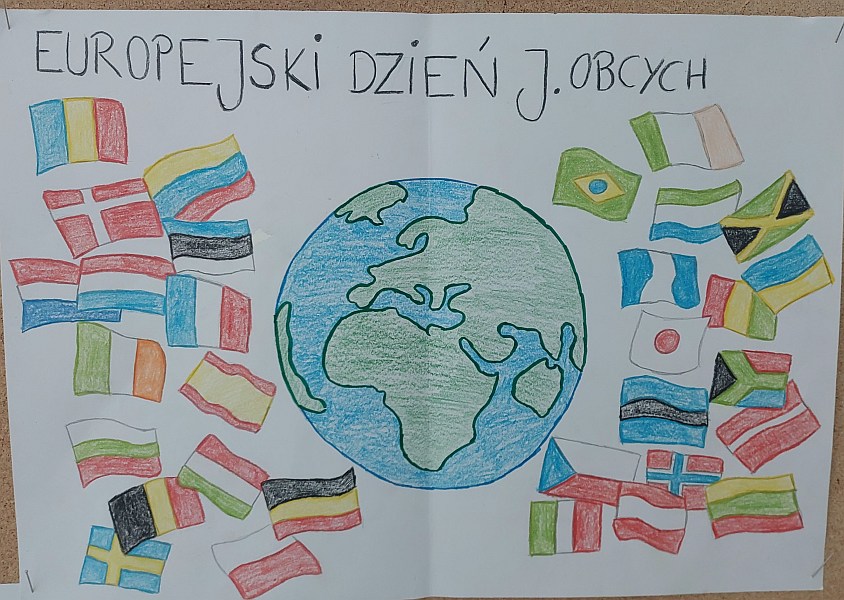 EUROPEJSKI DZIEŃ J. OBCYCH